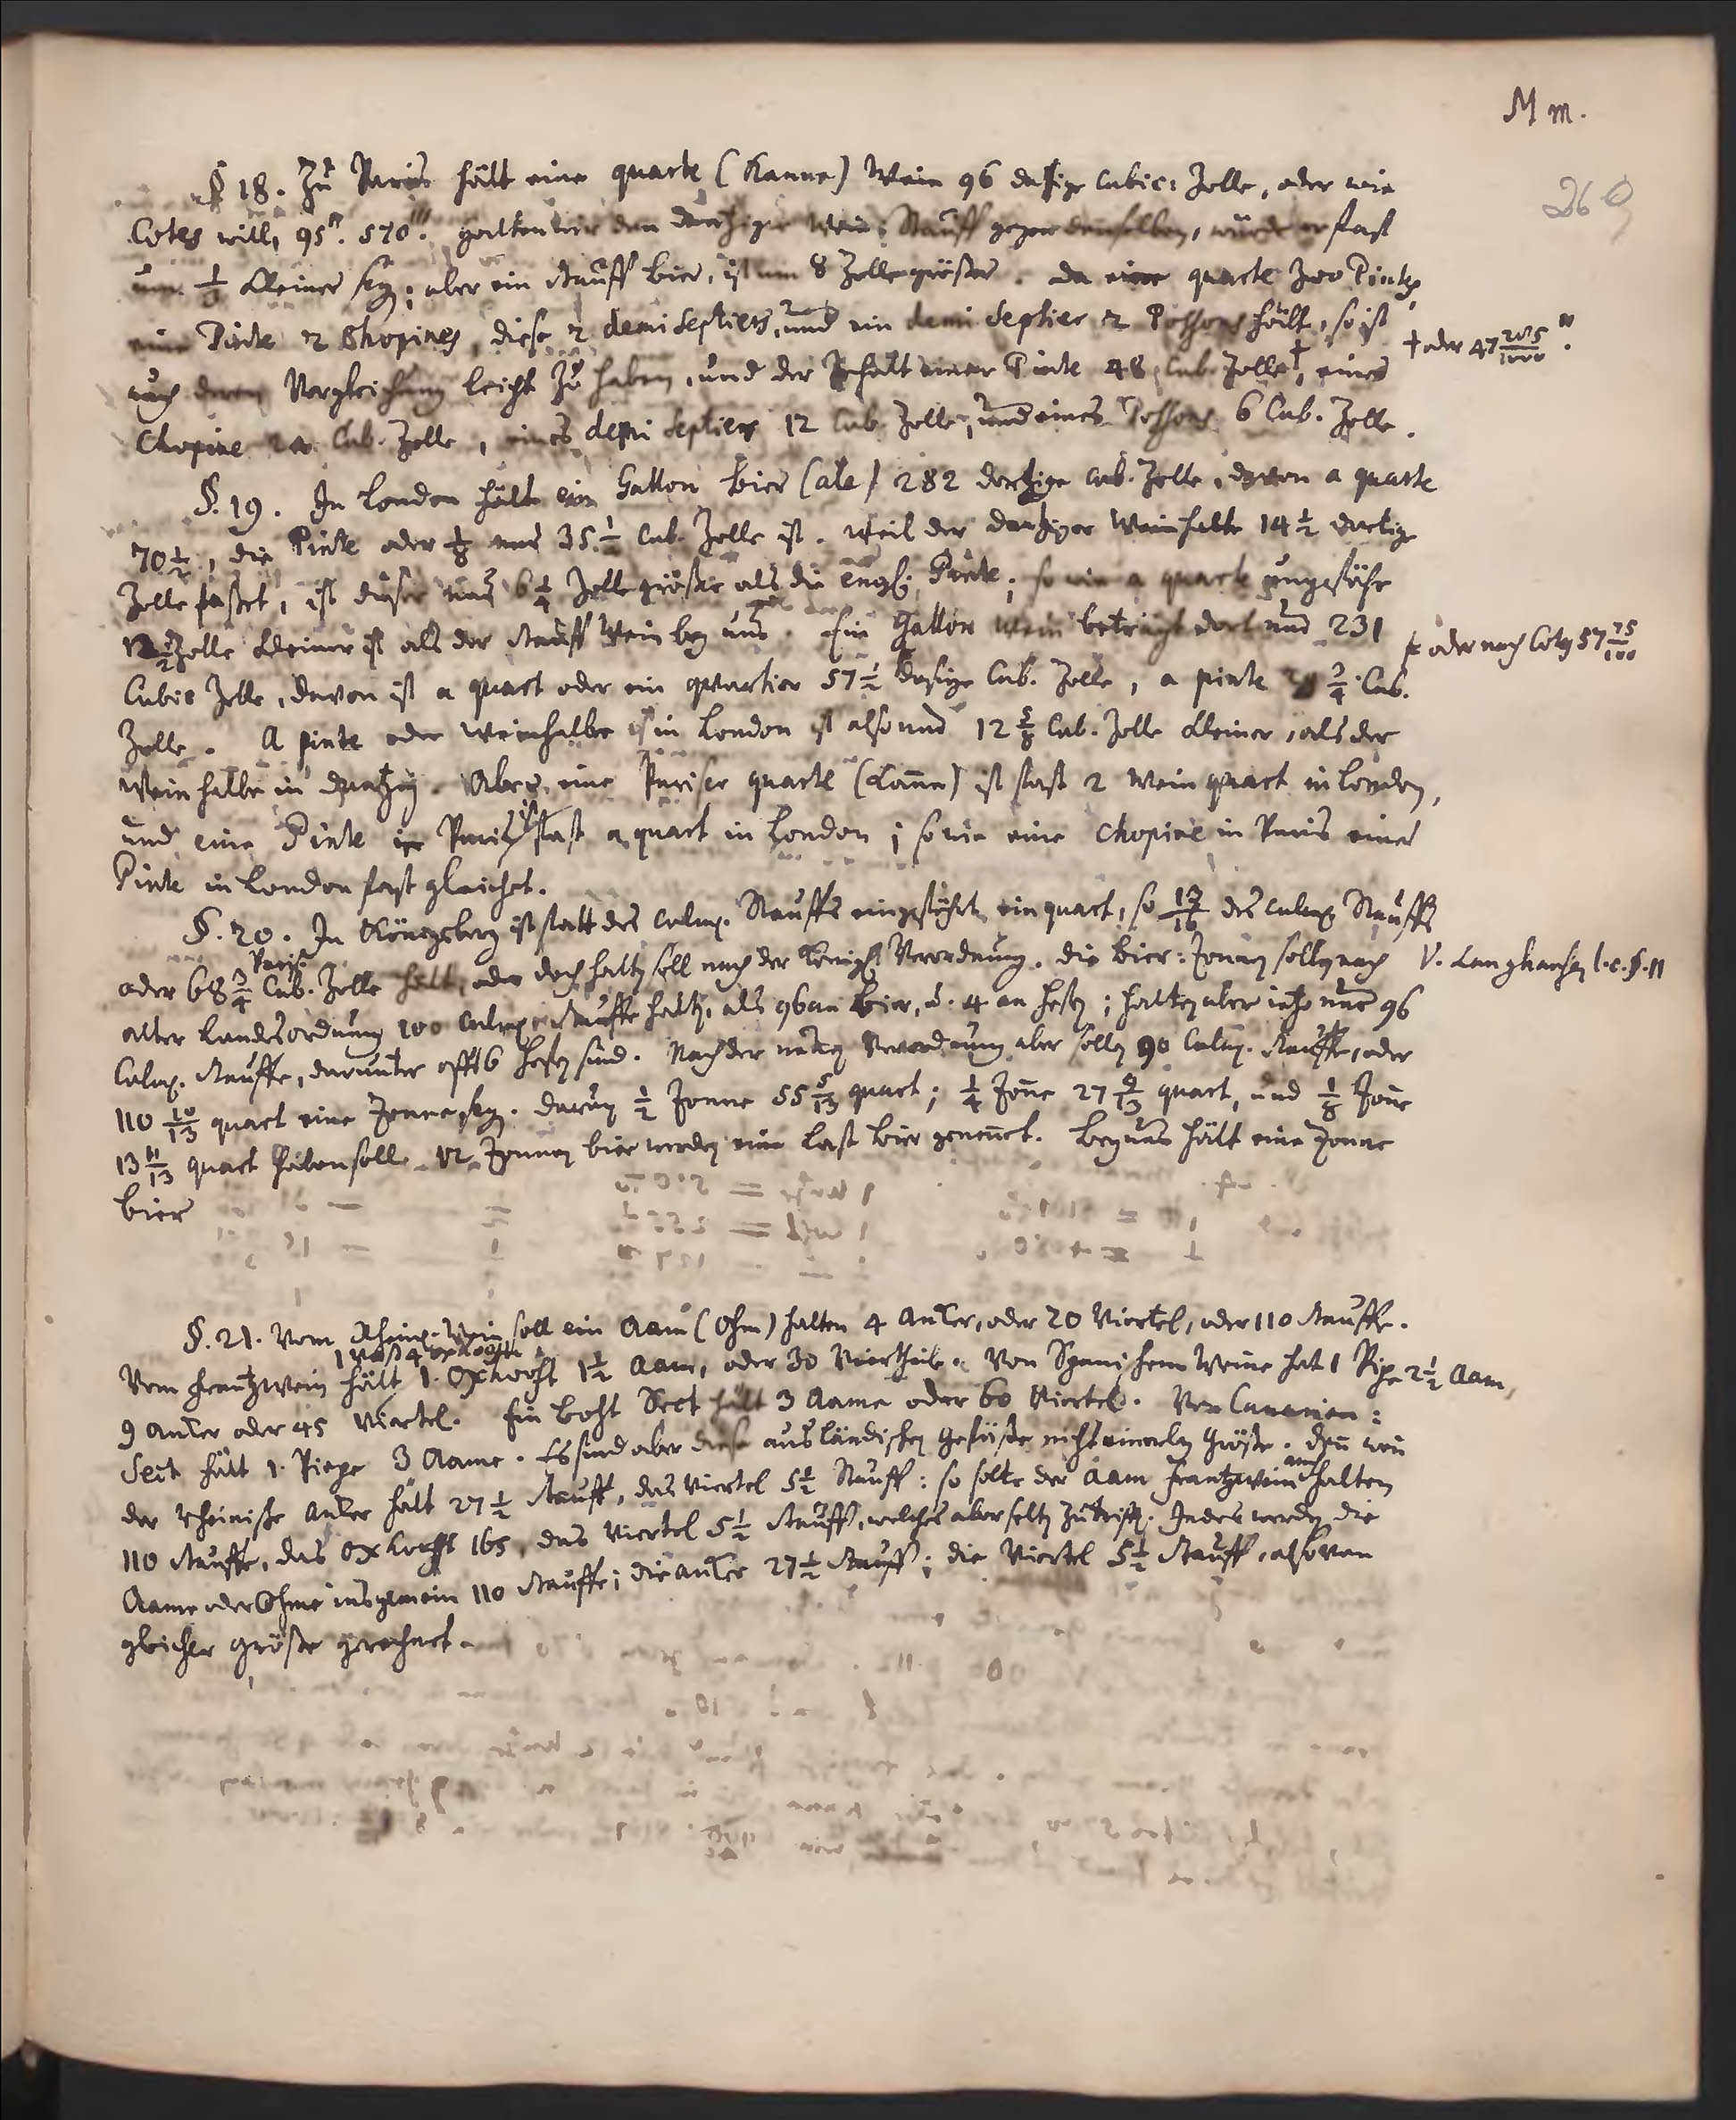 M m.
269
§ 18. Zu Paris hält eine quarte (Kanne) Wein 96 dasige Cubic: Zolle, oder wie
Cotes will, 95". 570'''. halten wir den dantziger Wein: Stauff gegen denselben, würde er fast
um kleiner seyn; aber ein Stauff bier, ist um 8 Zolle größer. da eine quarte zwo Pinten,
eine Pinte 2 Chopines, diese 2 demi Septiers, und ein demi Septier 2 Possons hält, so ist
auch deren Vergleichung leicht zu haben, und der Inhalt einer Pinte 48 Cub. Zolle†, eines
† oder 47 285/1000 "'.
Chopine 24 Cub. Zolle, eines demi Septiers 12 Cub. Zolle, und eines Possons 6 Cub. Zolle.
§. 19. In London hält ein Gallon bier (ale) 282 dortige cub. Zolle, davon a quarte
70 1/2, die Pinte oder 1/8 nur 35. 1/4 Cub. Zolle ist. weil der dantziger Weinhalbe 14 1/2 dortige
Zolle fasset, ist dieser nur 6 1/4 Zolle größer als die englische Pinte; so wie a quarte ungefähr
Zolle kleiner ist als der Stauff Wein bey uns. Ein Gallon Wein beträgt dort nur 231
Cubic Zolle, davon ist a quart oder ein quartier 57 1/2 dasige Cub. Zolle, a pinte 3/4 Cub.
oder nach Cotes 57 75/100
Zolle. A pinte oder Weinhalbe in London ist also nur 12 5/8 Cub. Zolle kleiner, als der
Weinhalbe in dantzig. Aber eine Pariser quarte (Kanne) ist fast 2 Wein quart in London,
und eine Pinte in Paris ist fast a quart in London; so wie eine Chopine in Paris einer
Pinte in London fast gleichet.
§. 20. In Königsberg ist statt des culm. Stauffs eingeführt ein quart, so 13/16 des culm. Stauffs
oder 68 3/4 Paris. Cub. Zolle hält, oder doch halten soll nach der Königl. Verordnung. die bier: Tonnen sollen nach
V. Langhansen l. c. §. 11
alter Landesordnung 100 culm. Stauffe halten, als 96 an bier, u. 4 an Hefen; halten aber jetzo nur 96
Culm. Stauffe, darunter offt 6 Hefen sind. Nach der neuen Verordnung aber sollen 90 Culm. Stauffe, oder
110 10/13 quart eine Tonne seyn. 1/2 Tonne 55 5/13 quart; 1/4 Tonne 27 9/13 quart, und 1/8 Tonne
13 11/13 quart haben solle. 12 Tonnen bier werden eine Last bier genennet. Bey uns hält eine Tonne
bier
§. 21. Vom Rhein. Wein soll ein Aam (Ohm) halten 4 Ancker, oder 20 Viertel, oder 110 Stauffe.
1 Vaß 4 oxhoofft
Vom frantzwein hält 1. Oxhoofft 1 1/2 Aam, oder 30 Viertheile. Von Spanischem Weine hat 1 Pipe 2 1/2 Aam,
9 Ancker oder 45 Viertel. Ein boht Sect hält 3 Aame oder 60 Viertel. Von Canarien:
Sect hält 1. Piepe 3 Aame. Es sind aber diese ausländischen Gefäße nicht einerley Größe. denn wie
der rheinische Ancker hält 27 1/2 Stauff, das Viertel 5 1/2 Stauff: so solte der Aam frantzwein auch halten
110 Stauffe, das oxhoofft 165, das Viertel 5 1/2 Stauff, welches aber selten zutrifft. Indes werden die
Aame oder Ohme insgemein 110 Stauffe; die Ancker 27 1/2 Stauff; die Viertel 5 1/2 Stauff, also von
gleicher größe gerechnet.